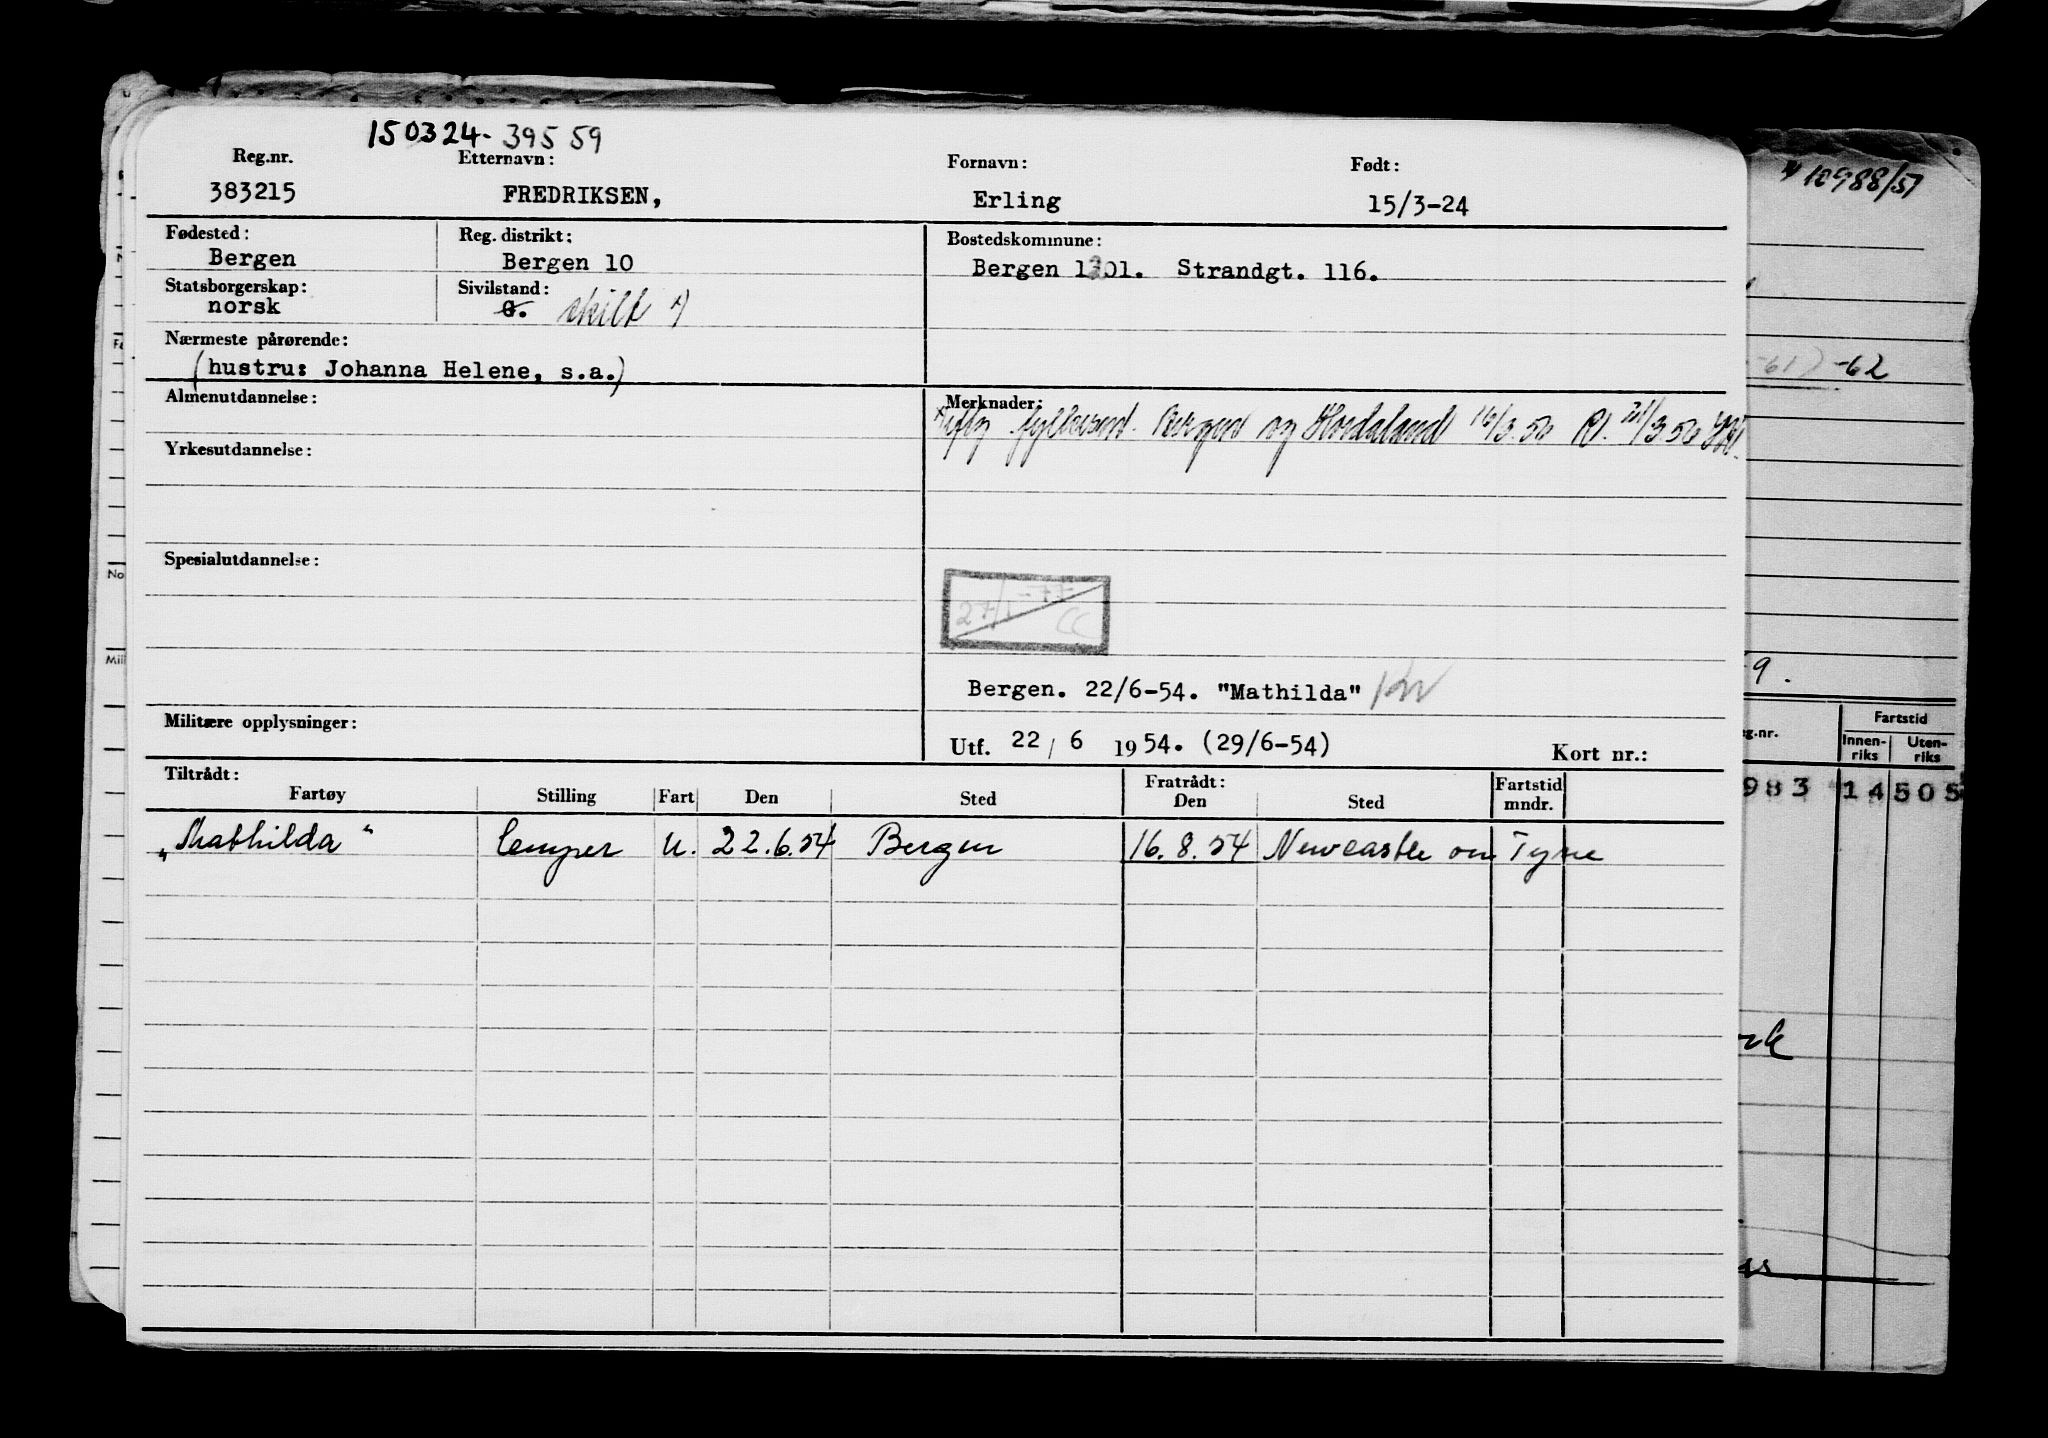 150324-39559
Reg.nr. Etternavn: Fornavn: Født:
383215 FREDRIKSEN, Erling 15/3-24
№ 10988/51
Fødested: Reg. distrikt: Bostedskommune:
Bergen Bergen 10 Bergen 1301. Strandgt. 116.
Statsborgerskap: Sivilstand:
norsk G. skilt x)
Nærmeste pårørende:
(hustru: Johanna Helene, s.a.)
-61) -62
Almenutdannelse: Merknader:
fylkesmt. Bergen og Hordaland 16/3.56 21/3 56
Yrkesutdannelse:
Spesialutdannelse:
27/1-77
CC
Bergen. 22/6-54. "Mathilda"
9.
Militære opplysninger:
Utf. 22/6 1954. (29/6-54) Kort nr.:
g.nr. Fartstid
Innen-riks Uten-riks
983 14 505
Tiltrådt: Fratrådt:
Fartøy Stilling Fart Den Sted Den Sted Fartstid mndr.
„Mathilda" lemper U. 22.6.54 Bergen 16.8.54 Newcastle on Tyne